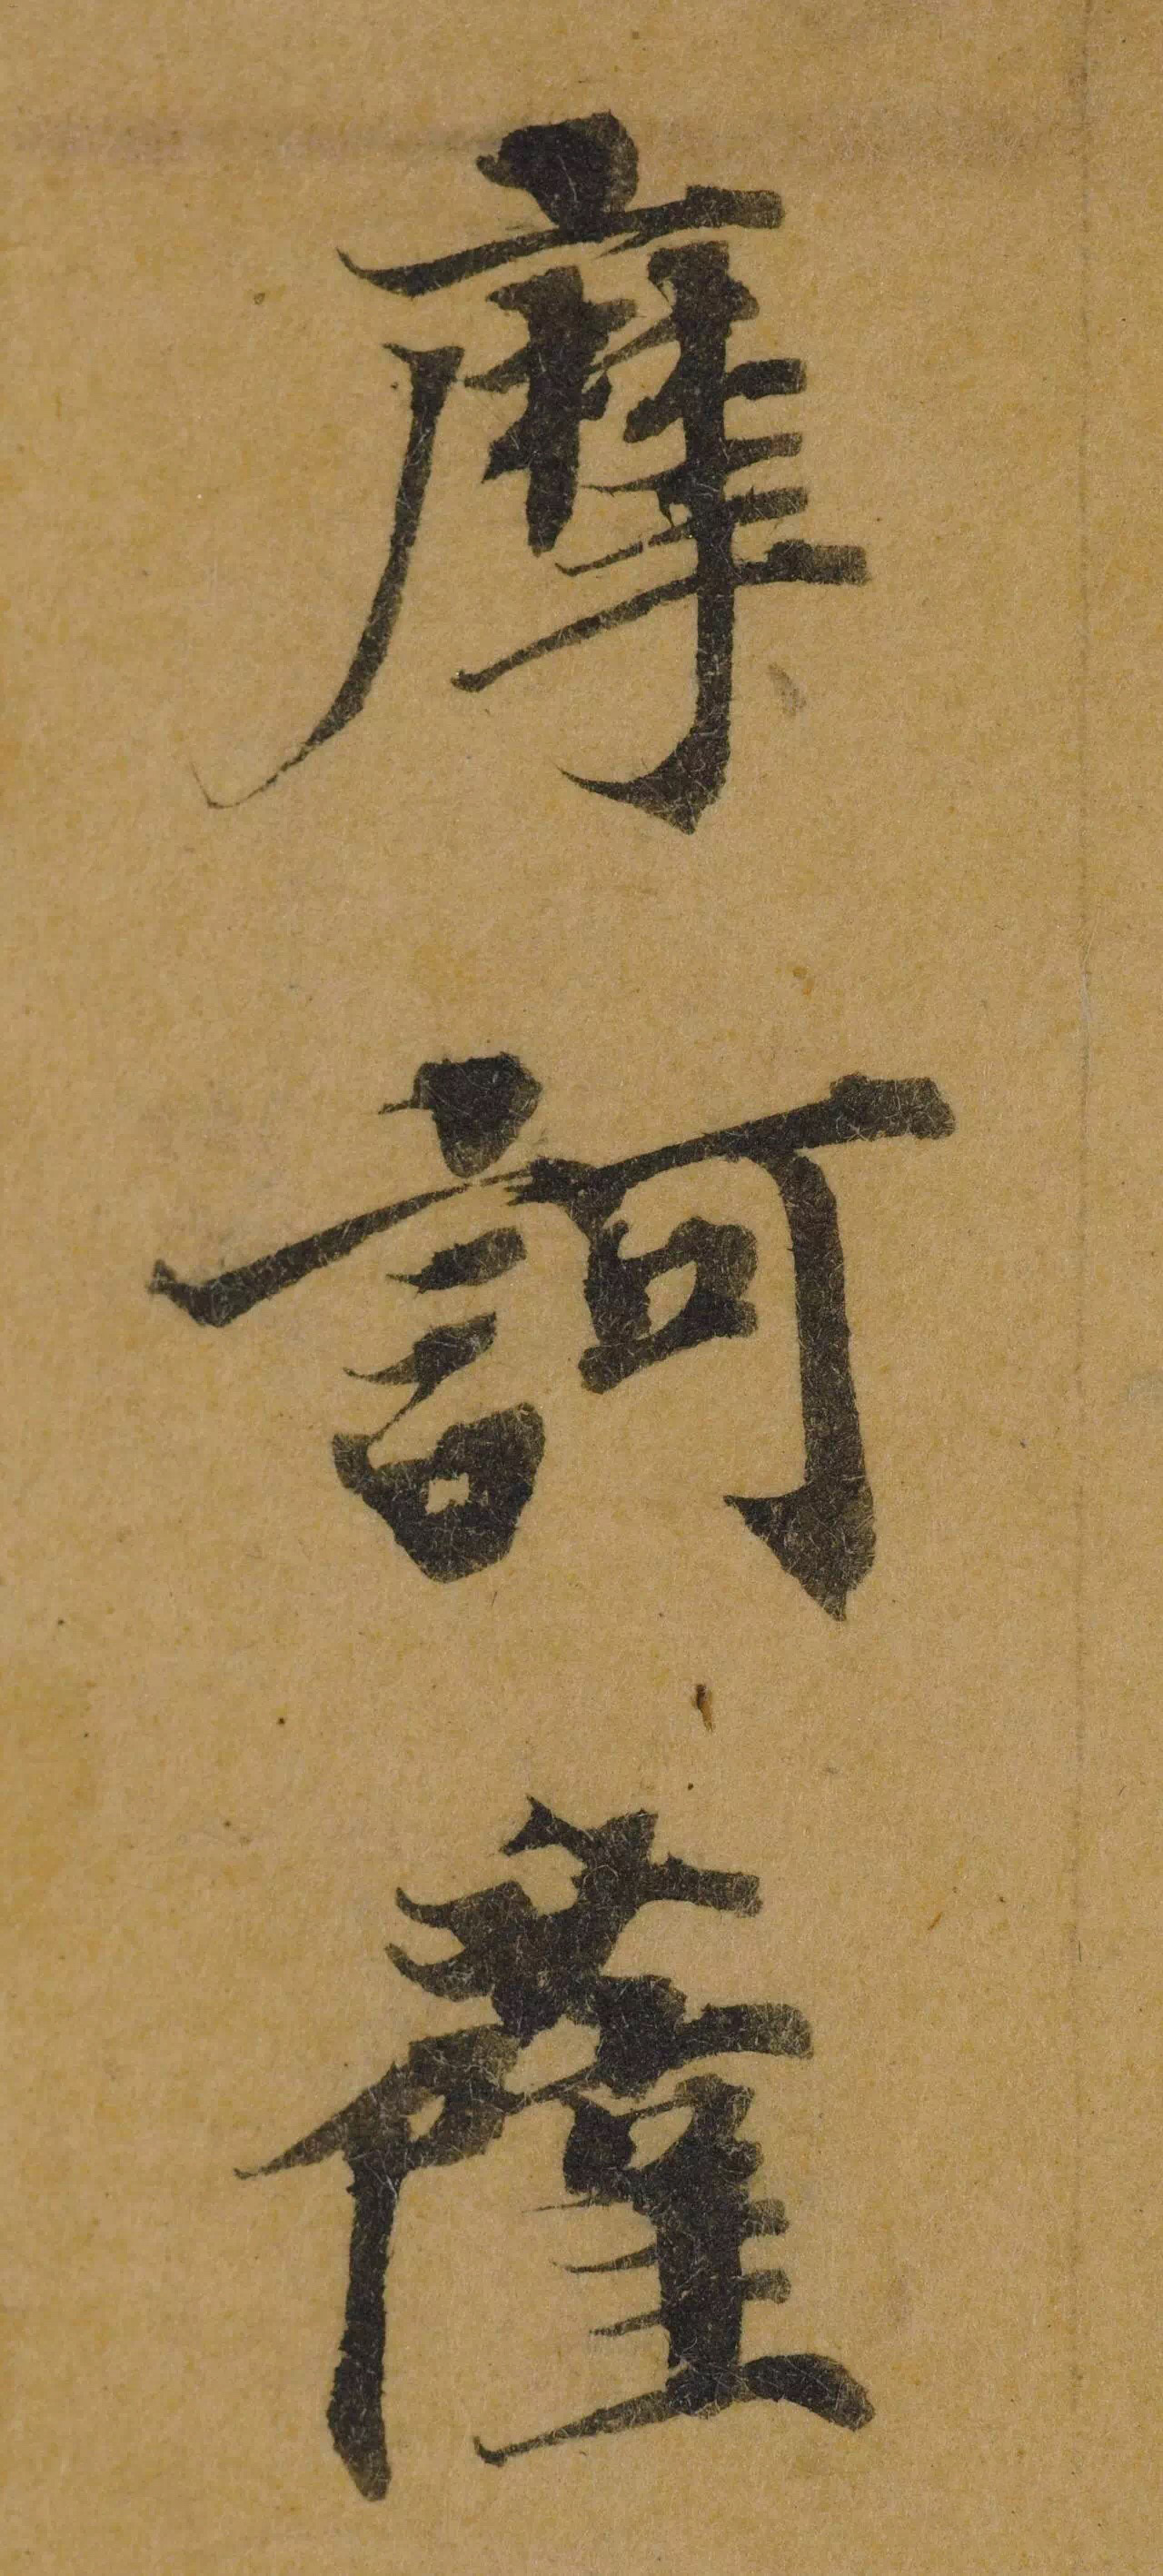 摩訶薩